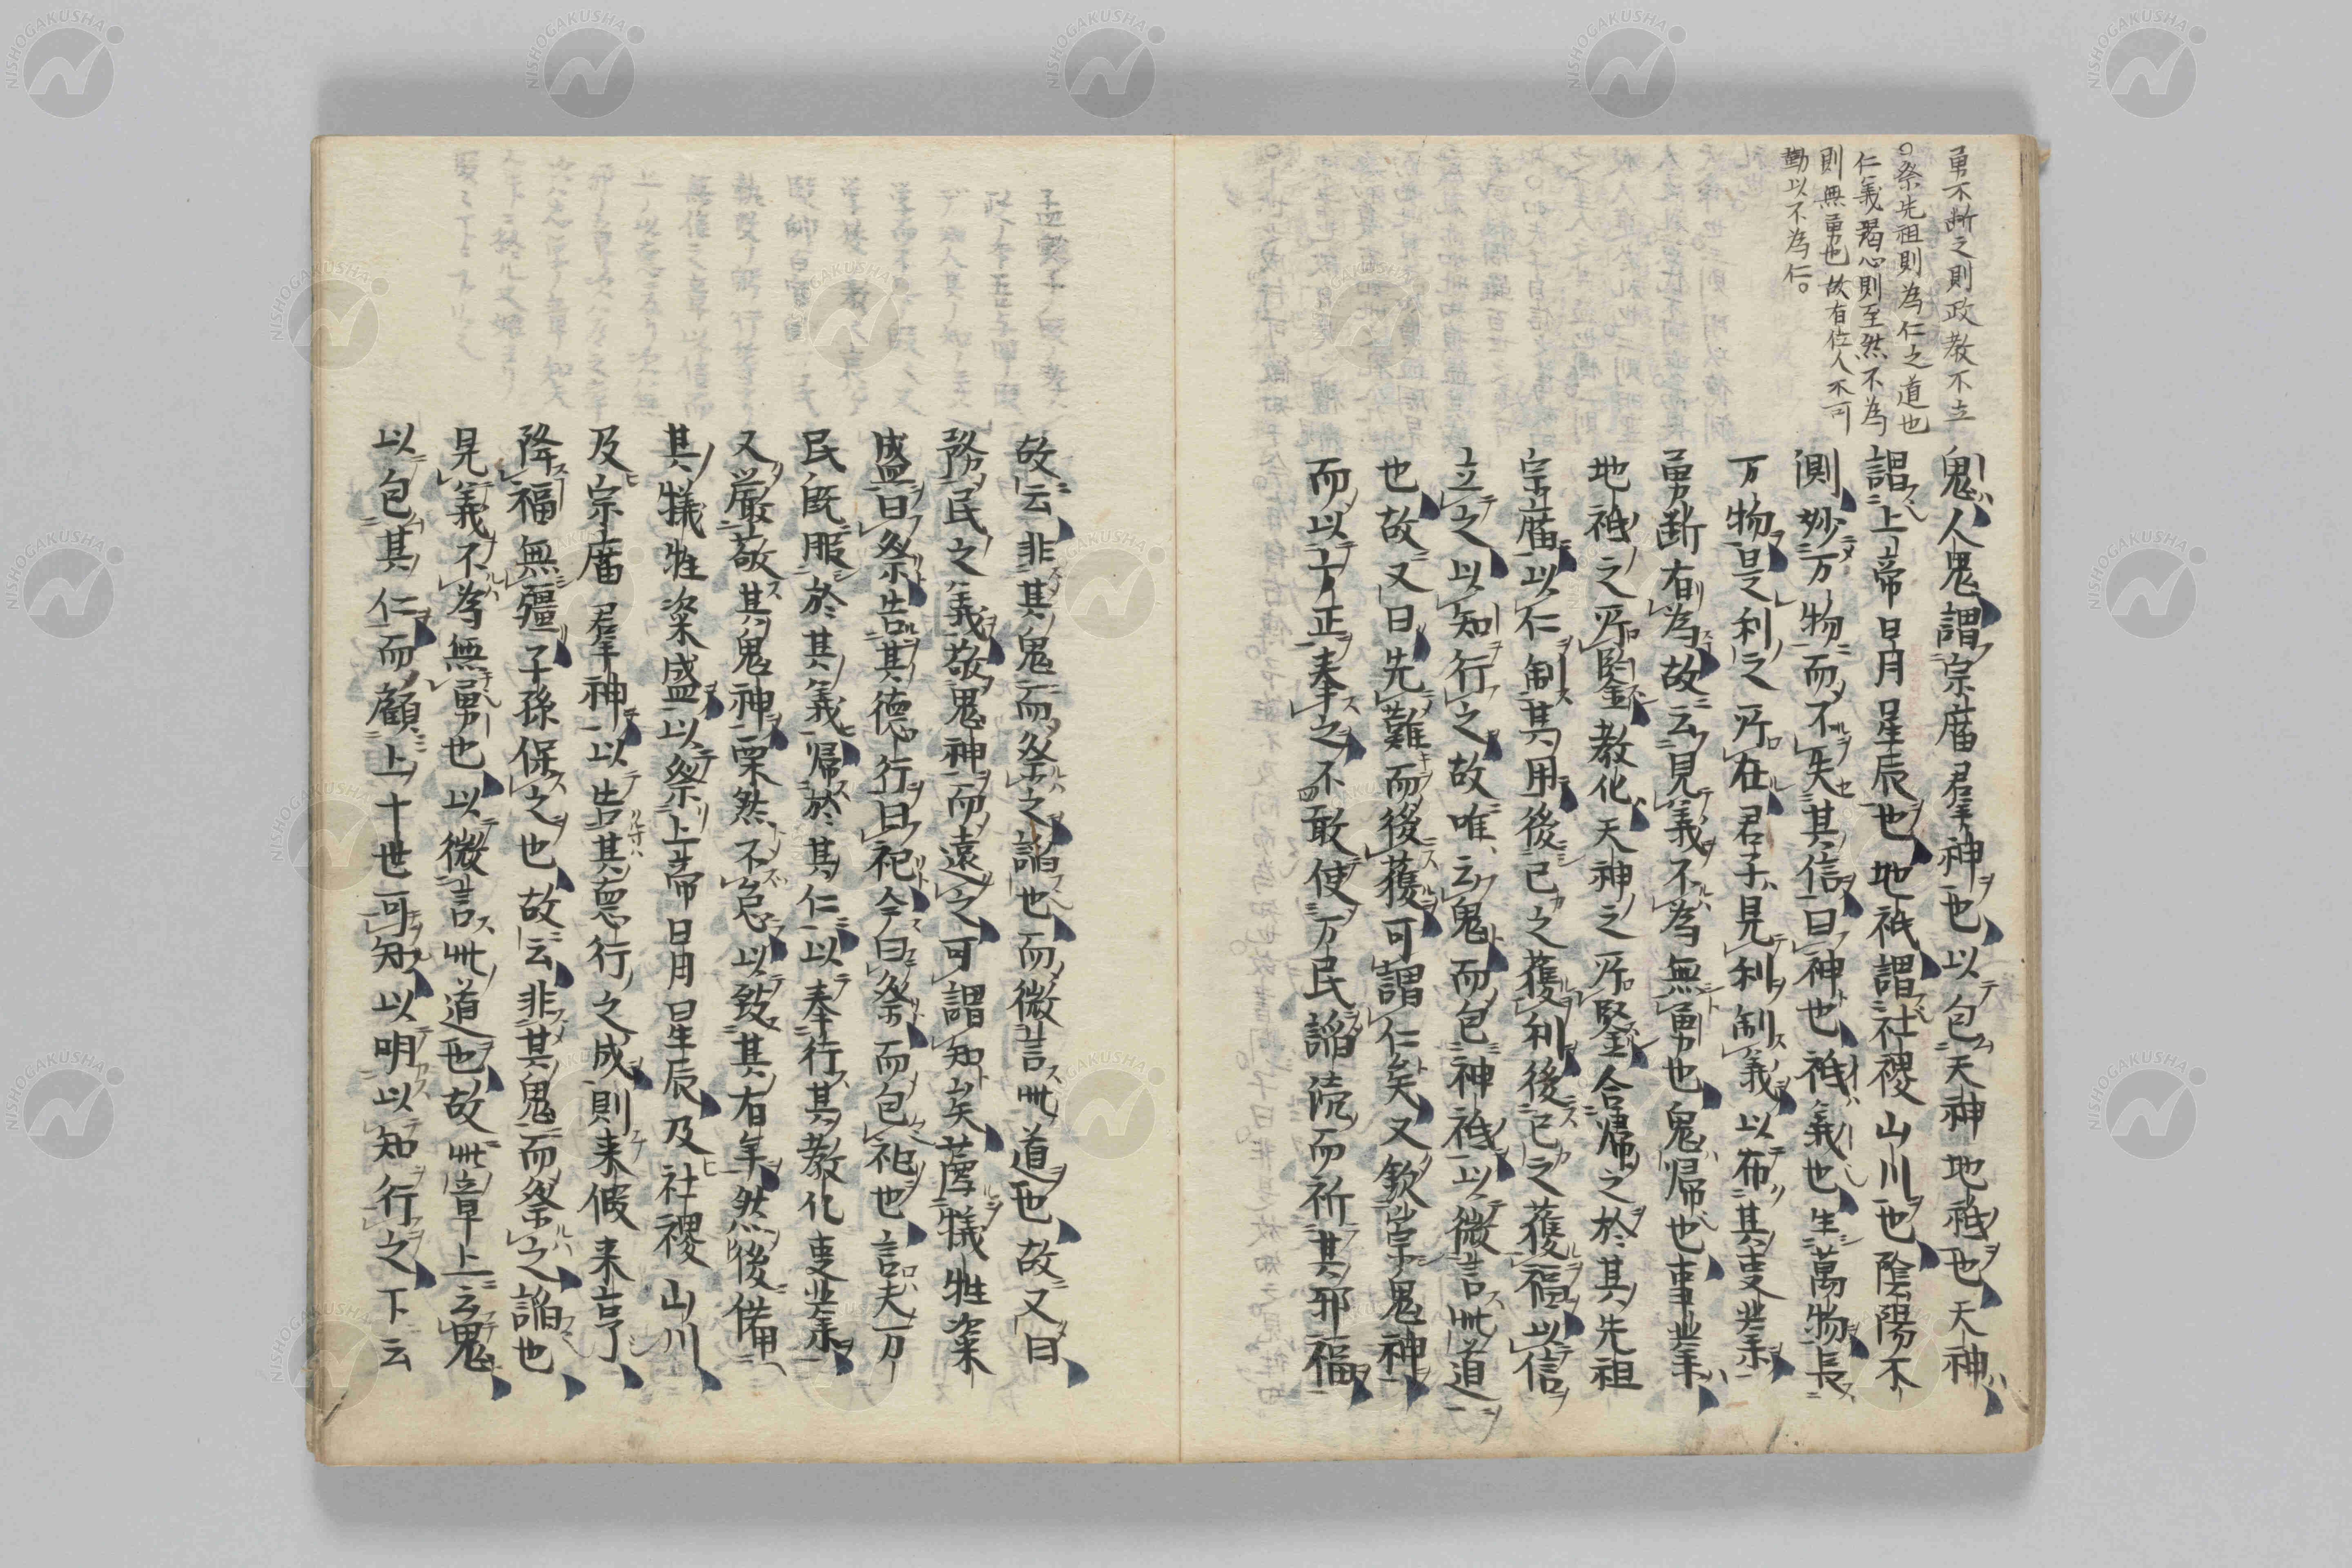 勇不断之則政教不立
○祭先祖則為仁之道也
仁義竭心則至然不為
則無勇也故有位人不可
動以不為仁。
鬼人鬼謂宗廟群神也以包天神地祇也天神
謂上帝日月星辰也地祇謂社稷山川也陰陽不
測妙万物而不失其信曰神也祇義也生萬物長
万物是利之所在君子見利制義以布其事業
勇断有為故云見義不為無勇也鬼帰也事業
地祇之所監教化天神之所監合帰之於其先祖
宗廟以仁制其用後己之獲利後己之獲福以信
立之以知行之故唯云鬼而包神祇以微言此道
也故又曰先難而後獲可謂仁矣又欽崇鬼神
而以正奉之不敢使万民謟涜而祈其邪福
故云非其鬼而祭之謟也而微言此道也故又曰
務民之義敬鬼神而遠之可謂知矣薦犠牲粢
盛曰祭告其徳行曰祀今曰祭而包祀也言夫万
民既服於其義帰於其仁以奉行其教化事業
又厳敬其鬼神栗然不怠以致其有年然後備
其犠牲粢盛以祭上帝日月星辰及社稷山川
及宗廟群神以告其悳行之成則来假来享
降福無疆子孫保之也故云非其鬼而祭之謟也
見義不為無勇也以微言此道也故此章上云鬼
以包其仁而顧上十世可知以明以知行之下云